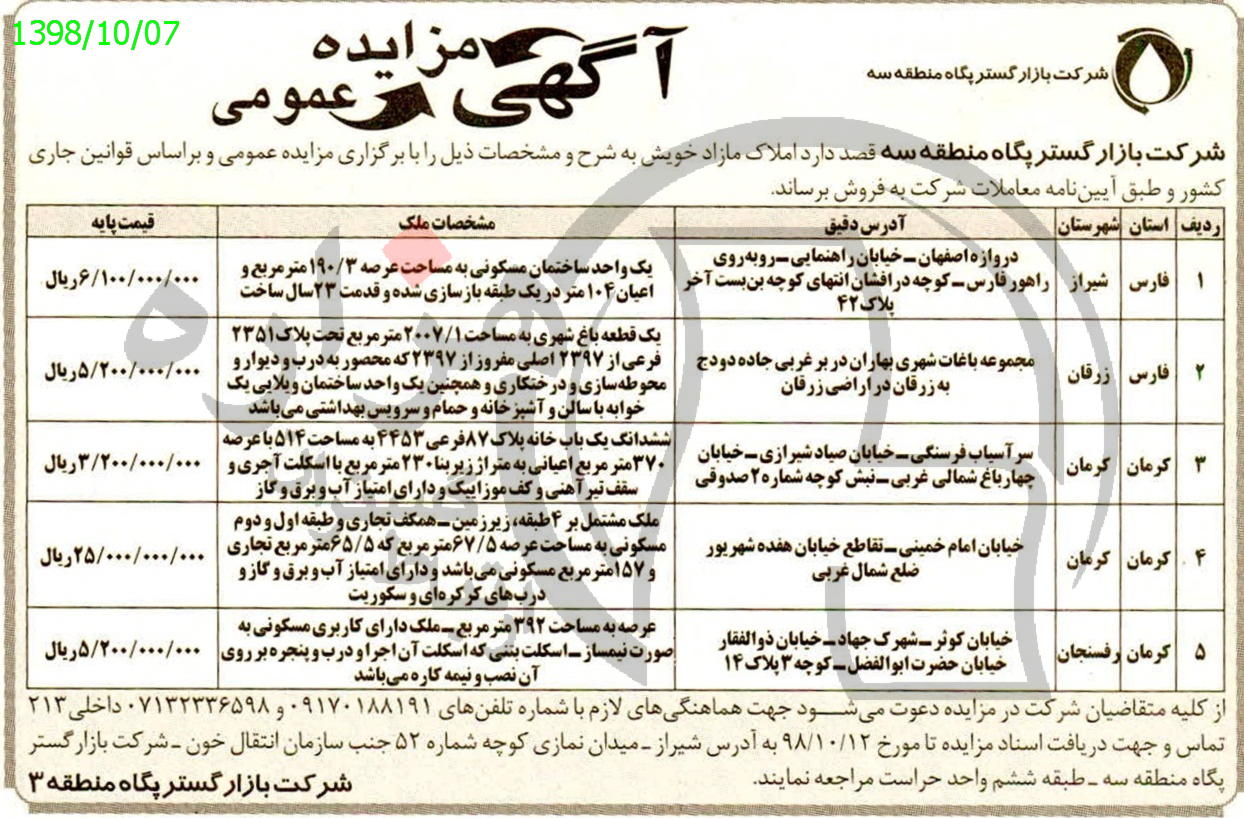 1398/10/07
شرکت بازار گستر پگاه منطقه سه
آگهی مزایده عمومی
شرکت بازار گستر پگاه منطقه سه قصد دارد املاک مازاد خویش به شرح و مشخصات ذیل را با برگزاری مزایده عمومی و براساس قوانین جاری
کشور و طبق آیین‌نامه معاملات شرکت به فروش برساند.
ردیف استان شهرستان آدرس دقیق مشخصات ملک قیمت پایه
۱ فارس شیراز
دروازه اصفهان ـ خیابان راهنمایی ـ روبه‌روی
راهور فارس ـ کوچه درافشان انتهای کوچه بن‌بست آخر
پلاک ۴۲
یک واحد ساختمان مسکونی به مساحت عرصه ۱۹۰/۳ متر مربع و
اعیان ۱۰۴ متر در یک طبقه بازسازی شده و قدمت ۲۳ سال ساخت
۶/۱۰۰/۰۰۰/۰۰۰ ریال
۲ فارس زرقان
مجموعه باغات شهری بهاران در بر غربی جاده دودج
به زرقان در اراضی زرقان
یک قطعه باغ شهری به مساحت ۲۰۰۷/۱ متر مربع تحت پلاک ۲۳۵۱
فرعی از ۲۳۹۷ اصلی مفروز از ۲۳۹۷ که محصور به درب و دیوار و
محوطه‌سازی و درختکاری و همچنین یک واحد ساختمان ویلایی یک
خوابه با سالن و آشپزخانه و حمام و سرویس بهداشتی می‌باشد
۵/۲۰۰/۰۰۰/۰۰۰ ریال
۳ کرمان کرمان
سرآسیاب فرسنگی ـ خیابان صیاد شیرازی ـ خیابان
چهارباغ شمالی غربی ـ نبش کوچه شماره ۲ صدوقی
ششدانگ یک باب خانه پلاک ۸۷ فرعی ۴۴۵۳ به مساحت ۵۱۴ با عرصه
۳۷۰ متر مربع اعیانی به متراژ زیربنا ۲۳۰ متر مربع با اسکلت آجری و
سقف تیرآهنی و کف موزاییک و دارای امتیاز آب و برق و گاز
۳/۲۰۰/۰۰۰/۰۰۰ ریال
۴ کرمان کرمان
خیابان امام خمینی ـ تقاطع خیابان هفده شهریور
ضلع شمال غربی
ملک مشتمل بر ۴ طبقه، زیرزمین ـ همکف تجاری و طبقه اول و دوم
مسکونی به مساحت عرصه ۶۷/۵ متر مربع که ۶۵/۵ متر مربع تجاری
و ۱۵۷ متر مربع مسکونی می‌باشد و دارای امتیاز آب و برق و گاز و
درب‌های کرکره‌ای و سکوریت
۲۵/۰۰۰/۰۰۰/۰۰۰ ریال
۵ کرمان رفسنجان
خیابان کوثر ـ شهرک جهاد ـ خیابان ذوالفقار
خیابان حضرت ابوالفضل ـ کوچه ۳ پلاک ۱۴
عرصه به مساحت ۳۹۲ متر مربع ـ ملک دارای کاربری مسکونی به
صورت نیمساز ـ اسکلت بتنی که اسکلت آن اجرا و درب و پنجره بر روی
آن نصب و نیمه کاره می‌باشد
۵/۲۰۰/۰۰۰/۰۰۰ ریال
از کلیه متقاضیان شرکت در مزایده دعوت می‌شود جهت هماهنگی‌های لازم با شماره تلفن‌های ۰۹۱۷۰۱۸۸۱۹۱ و ۰۷۱۳۲۳۳۶۵۹۸ داخلی ۲۱۳
تماس و جهت دریافت اسناد مزایده تا مورخ ۹۸/۱۰/۱۲ به آدرس شیراز ـ میدان نمازی کوچه شماره ۵۲ جنب سازمان انتقال خون ـ شرکت بازار گستر
پگاه منطقه سه ـ طبقه ششم واحد حراست مراجعه نمایند.
شرکت بازار گستر پگاه منطقه ۳